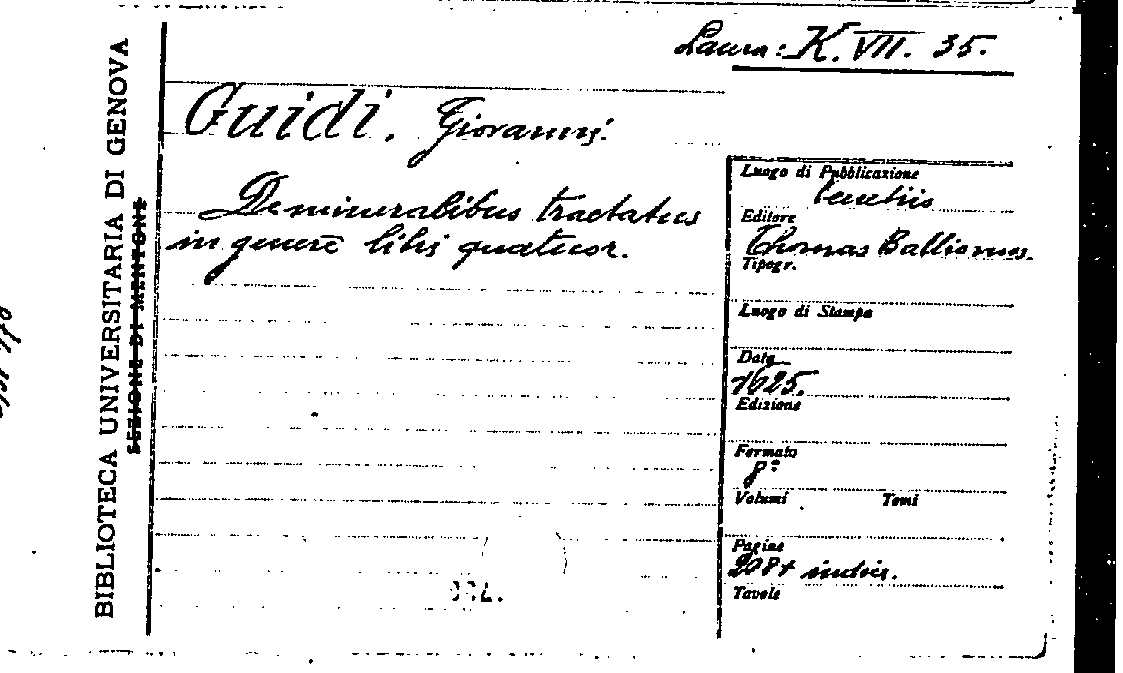 Laura: K. VII. 35.
BIBLIOTECA UNIVERSITARIA DI GENOVA
SEZIONE DI MENTONE
Guidi, Giovanni.
De mineralibus tractatus
in genere libri quatuor.
Luogo di Pubblicazione
Venetiis
Editore
Thomas Ballionus.
Tipogr.
Luogo di Stampa
Data
1625.
Edizione
Formato
8°
Volumi Tomi
Pagine
208 + indici.
Tavole